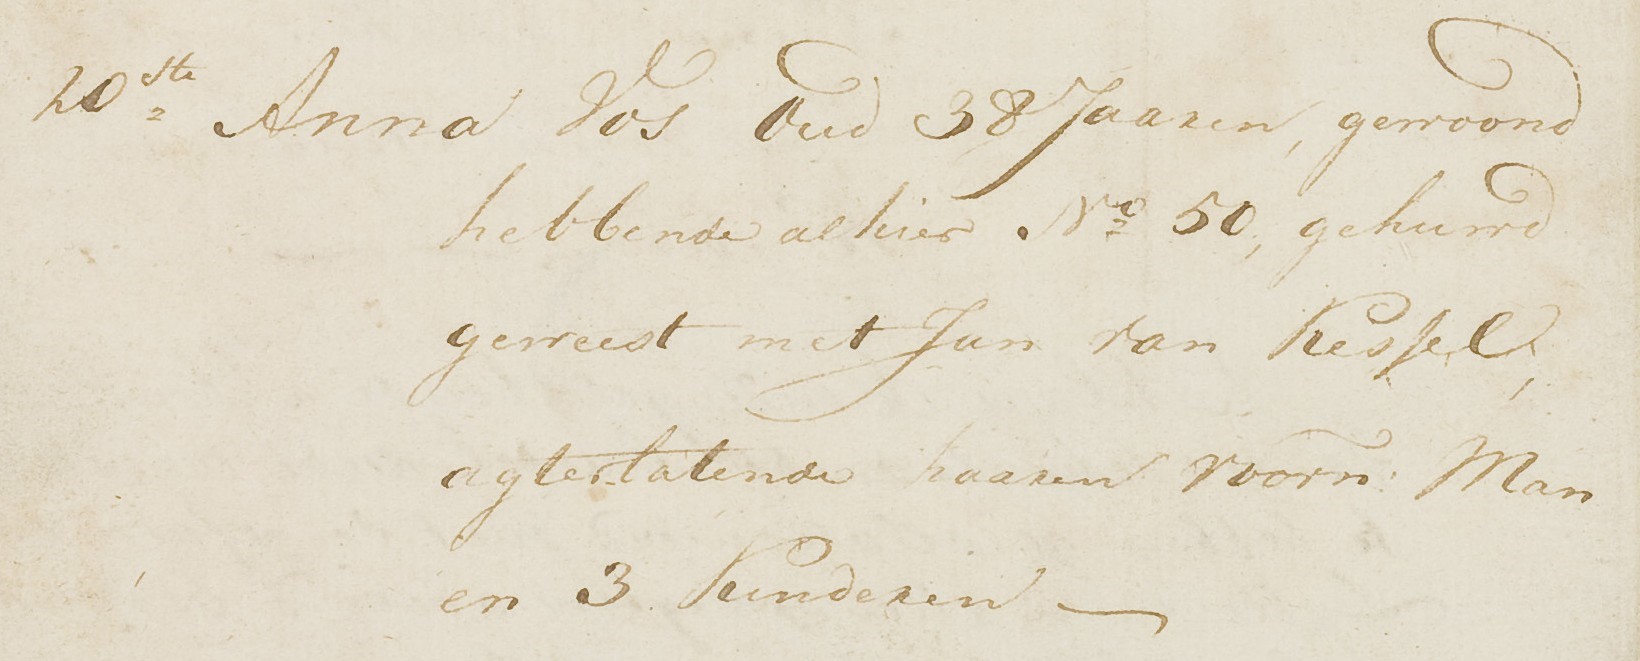 20ste Anna Vos Oud 38 Jaaren, gewoond
hebbende alhier No 50, gehuwd
geweest met Jan van Kessel,
agterlatende haaren voorn: Man
en 3 Kinderen —